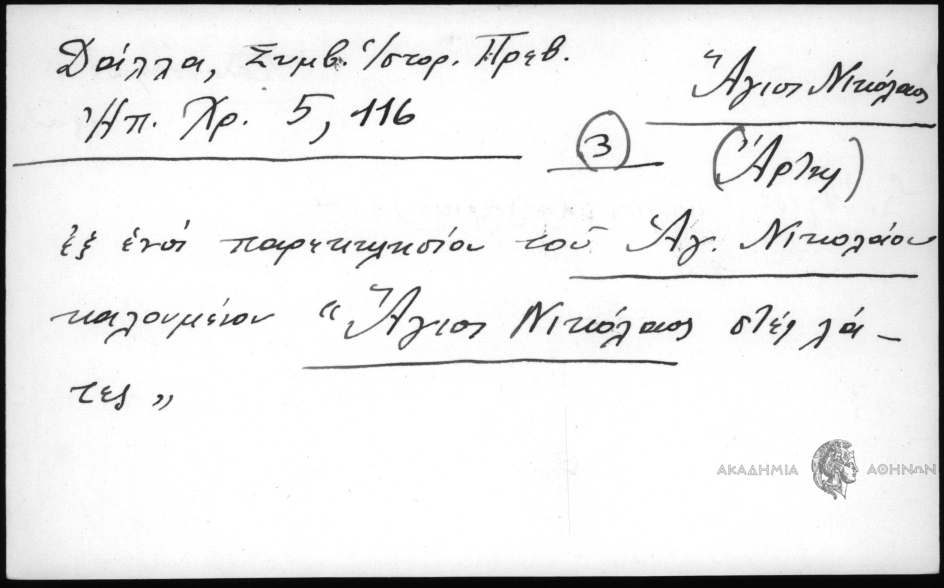 Δάλλα, Συμβ. Ἱστορ. Πρεβ.
Ἠπ. Χρ. 5, 116
Ἅγιος Νικόλαος
3
(Ἄρτης)
ἐξ ἑνός παρεκκλησίου τοῦ Ἁγ. Νικολάου
καλουμένου "Ἅγιος Νικόλαος στές λά-
τες"
ΑΚΑΔΗΜΙΑ ΑΘΗΝΩΝ